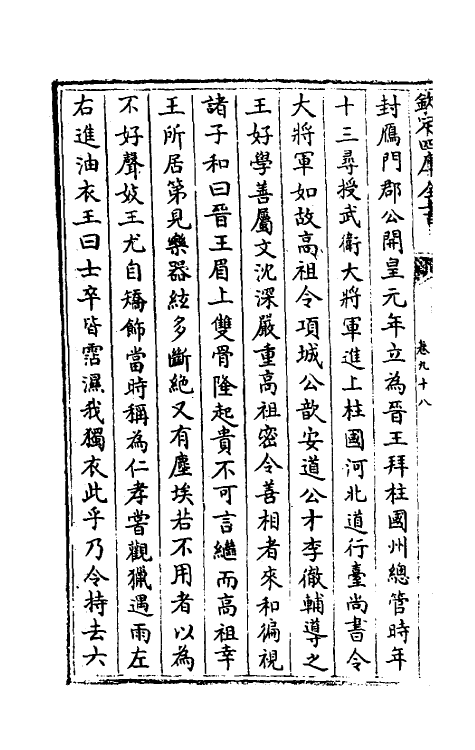 欽定四庫全書
卷九十八
封鴈門郡公開皇元年立為晉王拜柱國州總管時年
十三尋授武衛大將軍進上柱國河北道行臺尚書令
大將軍如故高祖令項城公歆安道公才李徹輔導之
王好學善屬文沈深嚴重高祖密令善相者來和徧視
諸子和曰晉王眉上雙骨隆起貴不可言繼而高祖幸
王所居第見樂器絃多斷絕又有塵埃若不用者以為
不好聲妓王尤自矯飾當時稱為仁孝嘗觀獵遇雨左
右進油衣王曰士卒皆霑濕我獨衣此乎乃令持去六